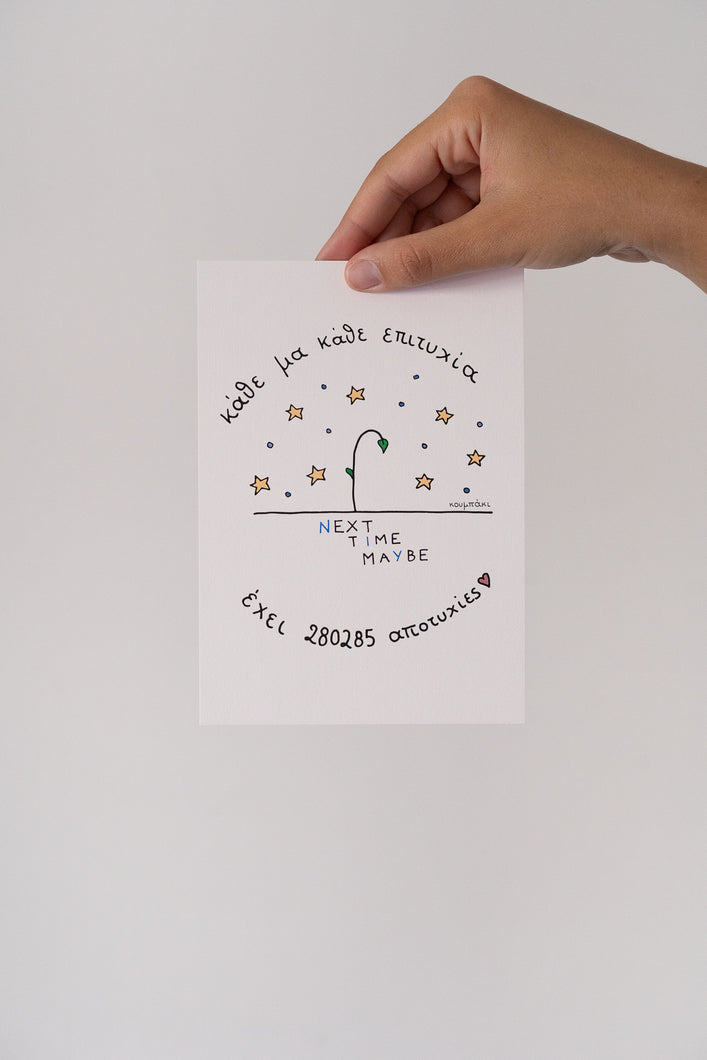 κάθε μα κάθε επιτυχία
κουμπάκι
NEXT
TIME
MAYBE
έχει 280285 αποτυχίες